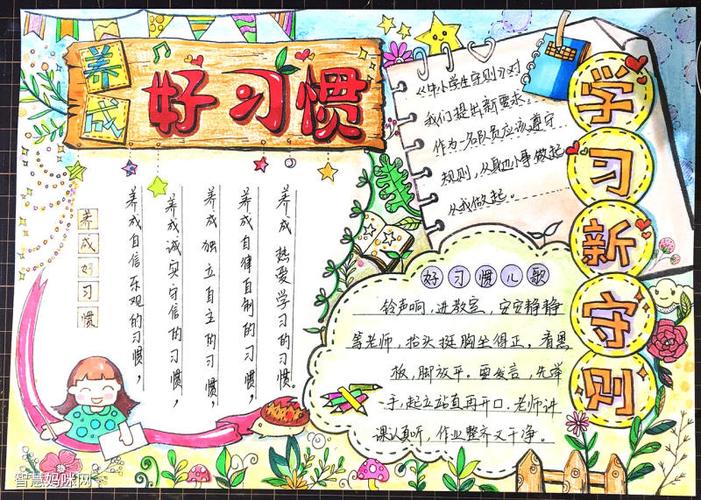 养成
好习惯
养成好习惯
养成自信乐观的习惯，
养成诚实守信的习惯，
养成独立自主的习惯，
养成自律自制的习惯，
养成热爱学习的习惯。
《中小学生守则》对
我们提出新要求。
作为一名队员应该遵守
规则，从身边小事做起
从我做起。
学习新守则
好习惯儿歌
铃声响，进教室，安安静静
等老师，抬头挺胸坐得正。看黑
板，脚放平。要发言，先举
手，起立站直再开口。老师讲
课认真听，作业整齐又干净。
智慧妈咪网